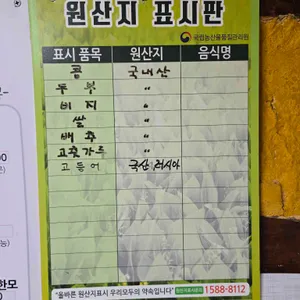 원산지 표시판
국립농산물품질관리원
표시 품목 원산지 음식명
콩 국내산
두부 "
비지 "
쌀 "
배추 "
고춧가루 "
고등어 국산, 러시아
"올바른 원산지표시 우리모두의 약속입니다" 1588-8112
한모